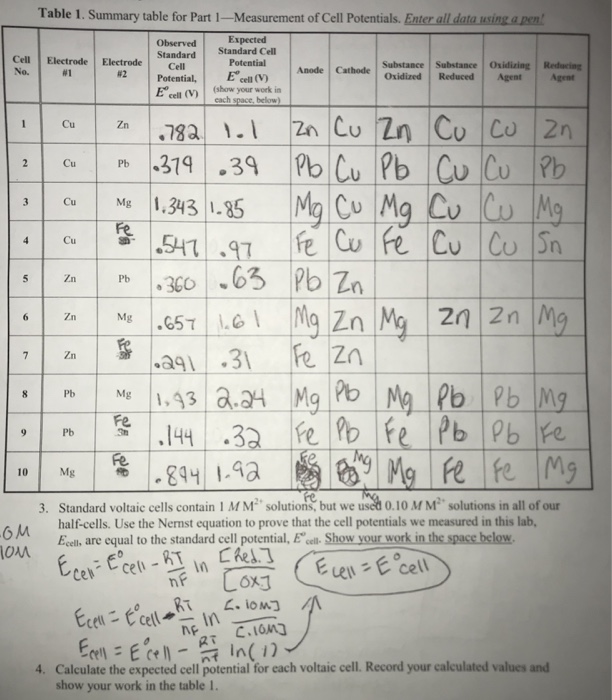 Table 1. Summary table for Part 1—Measurement of Cell Potentials. Enter all data using a pen!
Cell No. Electrode #1 Electrode #2 Observed Standard Cell Potential, E°cell (V) Expected Standard Cell Potential E°cell (V) (show your work in each space, below) Anode Cathode Substance Oxidized Substance Reduced Oxidizing Agent Reducing Agent
1 Cu Zn .782 1.1 Zn Cu Zn Cu Cu Zn
2 Cu Pb .379 .39 Pb Cu Pb Cu Cu Pb
3 Cu Mg 1.343 1.85 Mg Cu Mg Cu Cu Mg
4 Cu Fe .547 .97 Fe Cu Fe Cu Cu Sn
5 Zn Pb .360 .63 Pb Zn
6 Zn Mg .657 1.61 Mg Zn Mg Zn Zn Mg
7 Zn Fe .291 .31 Fe Zn
8 Pb Mg 1.93 2.24 Mg Pb Mg Pb Pb Mg
9 Pb Fe Sn .144 .32 Fe Pb Fe Pb Pb Fe
10 Mg Fe .894 1.92 Fe Mg Mg Fe Fe Mg
Fe Mg
3. Standard voltaic cells contain 1 M M²⁺ solutions, but we used 0.10 M M²⁺ solutions in all of our
half-cells. Use the Nernst equation to prove that the cell potentials we measured in this lab,
Ecell, are equal to the standard cell potential, E°cell. Show your work in the space below.
Ecell = E°cell - RT/nF ln [Red.]/[OX]
Ecell = E°cell
Ecell = E°cell - RT/nF ln [.10M]/[.10M]
Ecell = E°cell - RT/nF ln(1)
4. Calculate the expected cell potential for each voltaic cell. Record your calculated values and
show your work in the table 1.